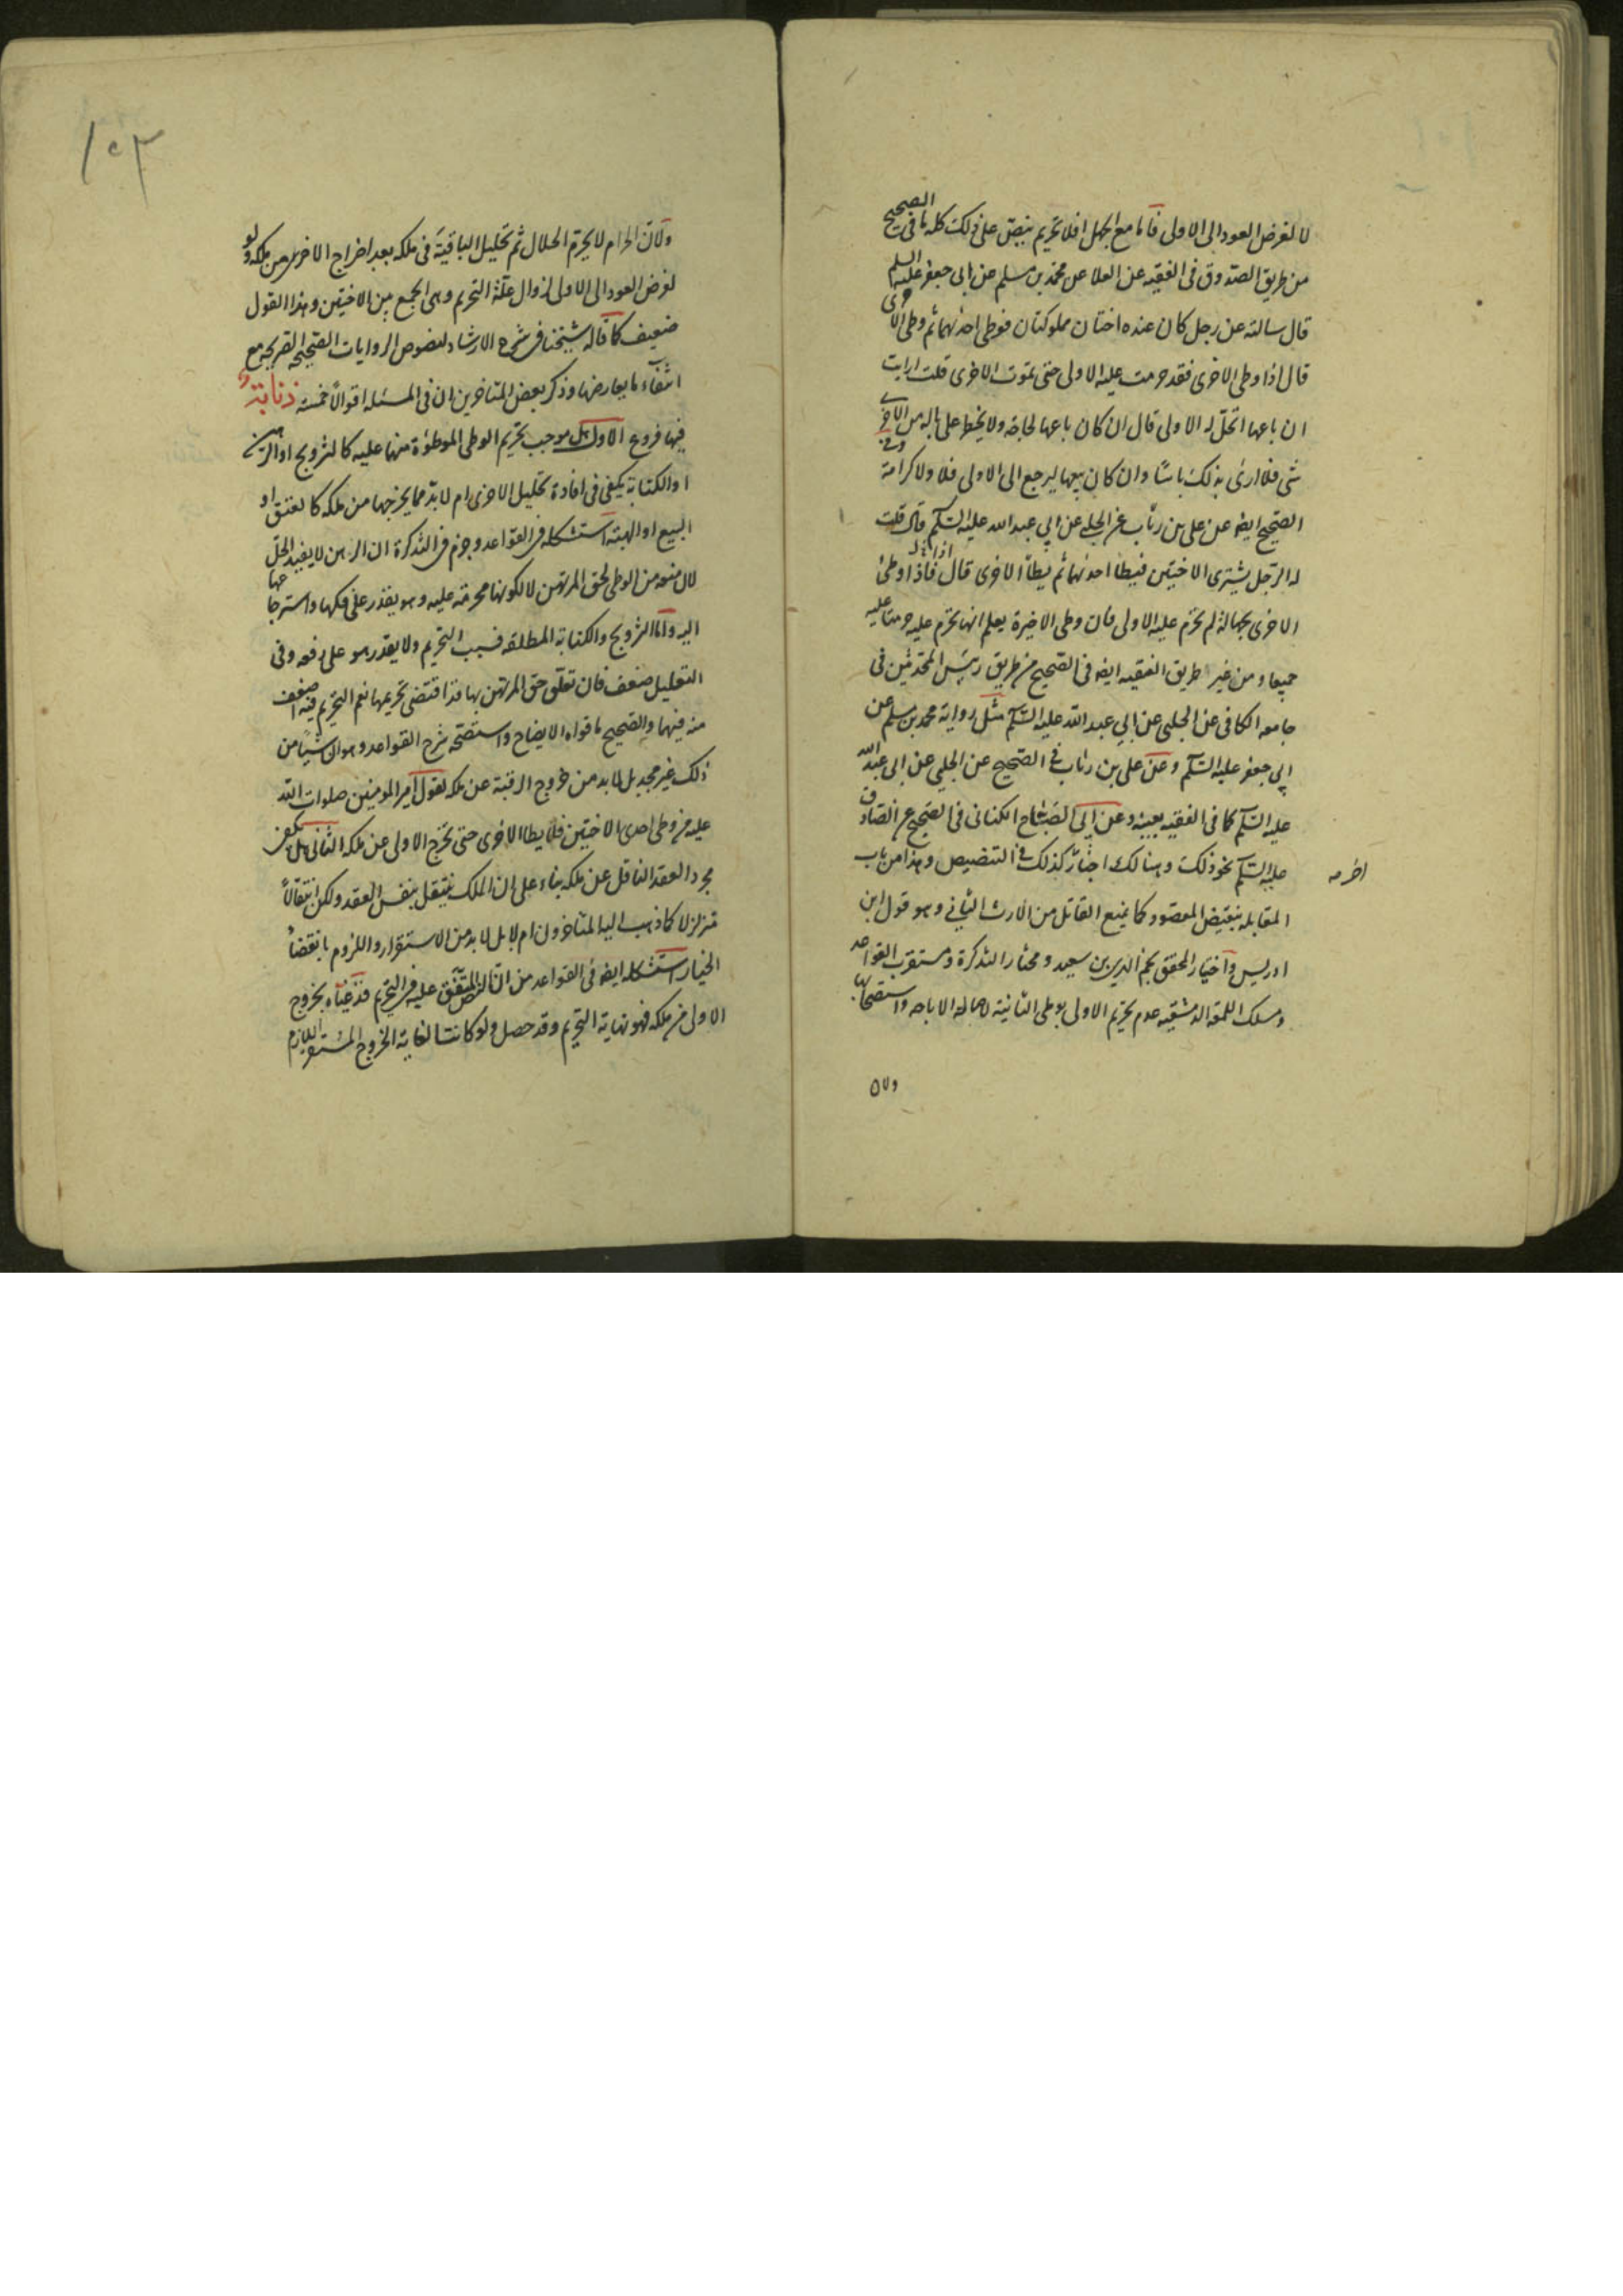 لا لغرض العود الى الاولى فاما مع الجهل فلا تحريم ينص على ذلك كله ما فى الصحيح
من طريق الصدوق فى الفقيه عن العلا عن محمد بن مسلم عن ابى جعفر عليه السلم
قال سالته عن رجل كان عنده اختان مملوكتان فوطى احدهما ثم وطى الاخرى
قال اذا وطى الاخرى فقد حرمت عليه الاولى حتى تموت الاخرى قلت ارايت
ان باعها اتحل له الاولى قال ان كان باعها لحاجة ولا يخطر على باله من الاخرى
شى فلا ارى بذلك باسًا وان كان يبيعها ليرجع الى الاولى فلا ولا كرامة وفى
الصحيح ايضا عن على بن رئاب عن الحلبى عن ابى عبد الله عليه السلم قال قلت
له الرجل يشترى الاختين فيطأ احدهما ثم يطأ الاخرى قال اذا وطئ
الاخرى بجهالة لم تحرم عليه الاولى فان وطى الاخيرة يعلم انها تحرم عليه حرمتا عليه
جميعا ومن غير طريق الفقيه ايضا فى الصحيح من طريق رئيس المحدثين فى
جامعه الكافى عن الحلبى عن ابى عبد الله عليه السلم مثل رواية محمد بن مسلم عن
ابى جعفر عليه السلم وعن على بن رئاب فى الصحيح عن الحلبى عن ابى عبد الله
عليه السلم كما فى الفقيه بعينه وعن ابى الصباح الكنانى فى الصحيح عن الصادق
عليه السلم نحو ذلك وهنالك اخبار كذلك فى التنصيص وهذا من باب
اخر مه
المقابله بنقيض المقصود كما يمنع القاتل من الارث الثانى وهو قول ابن
ادريس واختيار المحقق نجم الدين بن سعيد ومختار التذكرة ومستقرب القواعد
ومسلك اللمعه الدمشقيه عدم تحريم الاولى بوطى الثانية لاصالة الاباحه واستصحابها
ولان
١٥٣
ولان الحرام لا يحرم الحلال ثم تحليل الباقية فى ملكه بعد اخراج الاخرى من ملكه ولو
لغرض العود الى الاولى لزوال علة التحريم وهى الجمع بين الاختين وهذا القول
ضعيف كما قاله شيخنا فى شرح الارشاد لنصوص الروايات الصحيحه الصريحه مع
انتفاء ما يعارضها وذكر بعض المتاخرين ان فى المسئله اقوالًا خمسة ذنابة
فيها فروع الاول هل موجب تحريم الوطى الموطوة منهما عليه كالتزويج او الرهن
او الكتابة يكفى فى افادة تحليل الاخرى ام لا بد مما يخرجها من ملكه كالعتق او
البيع او الهبة استشكله فى القواعد وجزم فى التذكرة ان الرهن لا يفيد الحل
لان منعه من الوطى لحق المرتهن لا لكونها محرمة عليه وهو يقدر على فكها واسترجاعها
اليه واما التزويج والكتابة المطلقه فسبب التحريم ولا يقدر هو على رفعه وفى
التعليل ضعف فان تعلق حق المرتهن بها قد اقتضى تحريمها نعم التحريم فيه اضعف
منه فيهما والصحيح ما قواه الايضاح واستصحه شرح القواعد وهو ان شيئًا من
ذلك غير مجد بل لا بد من خروج الرقبة عن ملكه لقول امير المومنين صلوات الله
عليه من وطى احدى الاختين فلا يطا الاخرى حتى تخرج الاولى عن ملكه الثانى هل يكفى
مجرد العقد الناقل عن ملكه بناء على ان الملك ينتقل بنفس العقد ولكن انتقالًا
متزلزلا كما ذهب اليه المتاخرون ام لا بل لا بد من الاستقرار واللزوم بانقضاء
الخيار استشكله ايضا فى القواعد من ان النص المتفق عليه فى التحريم قد غياه بخروج
الاولى من ملكه فهو نهاية التحريم وقد حصل ولو كانت الغاية الخروج المستقر اللازم